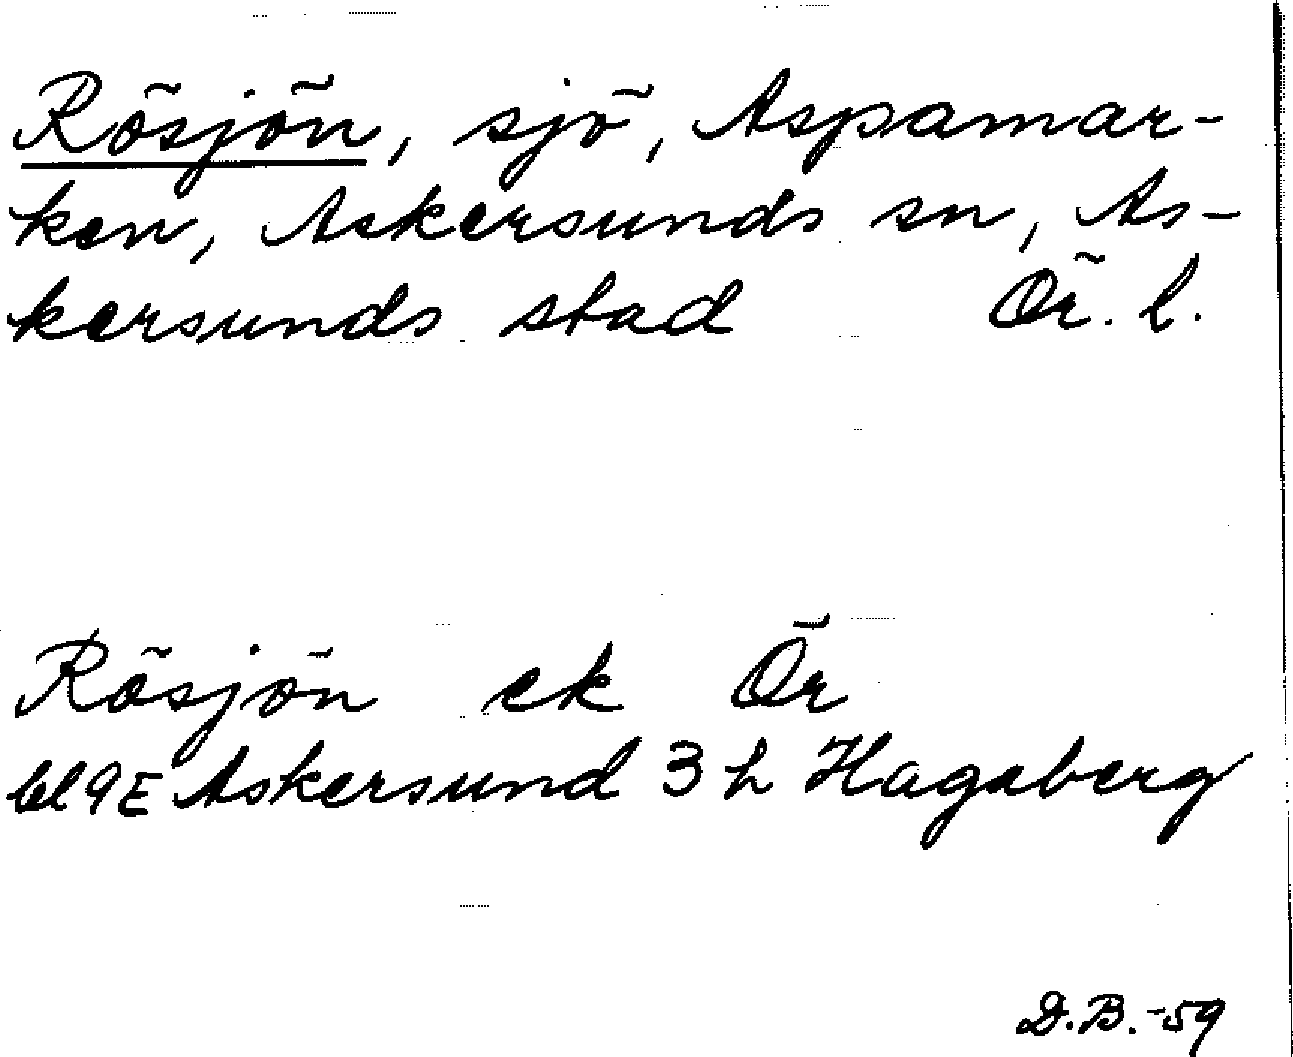 Rösjön, sjö, Aspamar-
ken, Askersunds sn, As-
kersunds stad Ör. l.
Rösjön ek Ör
bl 9E Askersund 3 h Hagaberg
D.B.-59